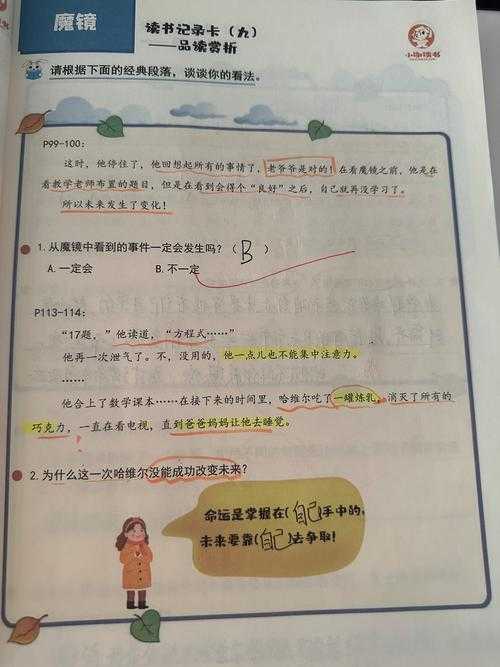 魔镜
读书记录卡（九）
——品读赏析
小咖读书
请根据下面的经典段落，谈谈你的看法。
P99-100：
这时，他停住了，他回想起所有的事情了，老爷爷是对的！在看魔镜之前，他是在
看教学老师布置的题目，但是在看到会得个“良好”之后，自己就再没学习了。
所以未来发生了变化！
1. 从魔镜中看到的事件一定会发生吗？（ B ）
A. 一定会 B. 不一定
P113-114：
“17题，”他读道，“方程式……”
他再一次泄气了。不，没用的，他一点儿也不能集中注意力。
……
他合上了数学课本……在接下来的时间里，哈维尔吃了一罐炼乳，消灭了所有的
巧克力，一直在看电视，直到爸爸妈妈让他去睡觉。
2. 为什么这一次哈维尔没能成功改变未来？
命运是掌握在（自己）手中的，
未来要靠（自己）去争取！